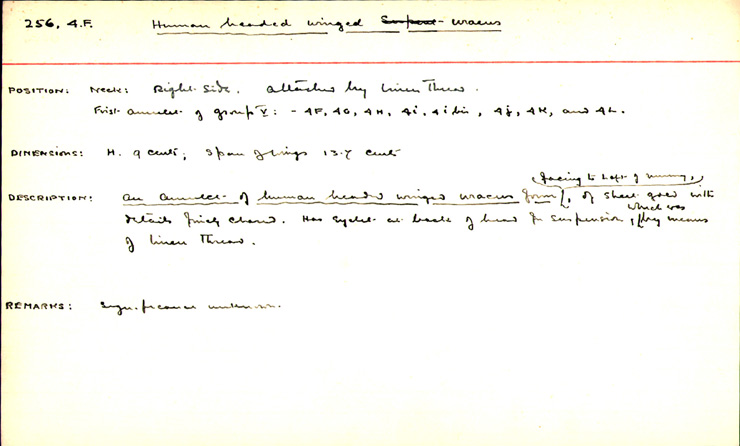 256, 4.F. Human headed winged Serpent- uraeus
POSITION: Neck: Right side. attached by linen thread.
First amulet of group V: - 4F, 4G, 4H, 4i, 4i bis, 4j, 4K, and 4L.
DIMENSIONS: H. 9 cents; Span of wings 13.7 cents
(facing to left of mummy,)
DESCRIPTION: an amulet of human headed winged uraeus form, of sheet gold with
which was
details finely chased. Has eyelet at back of head for suspension, by means
of linen thread.
REMARKS: Significance unknown.